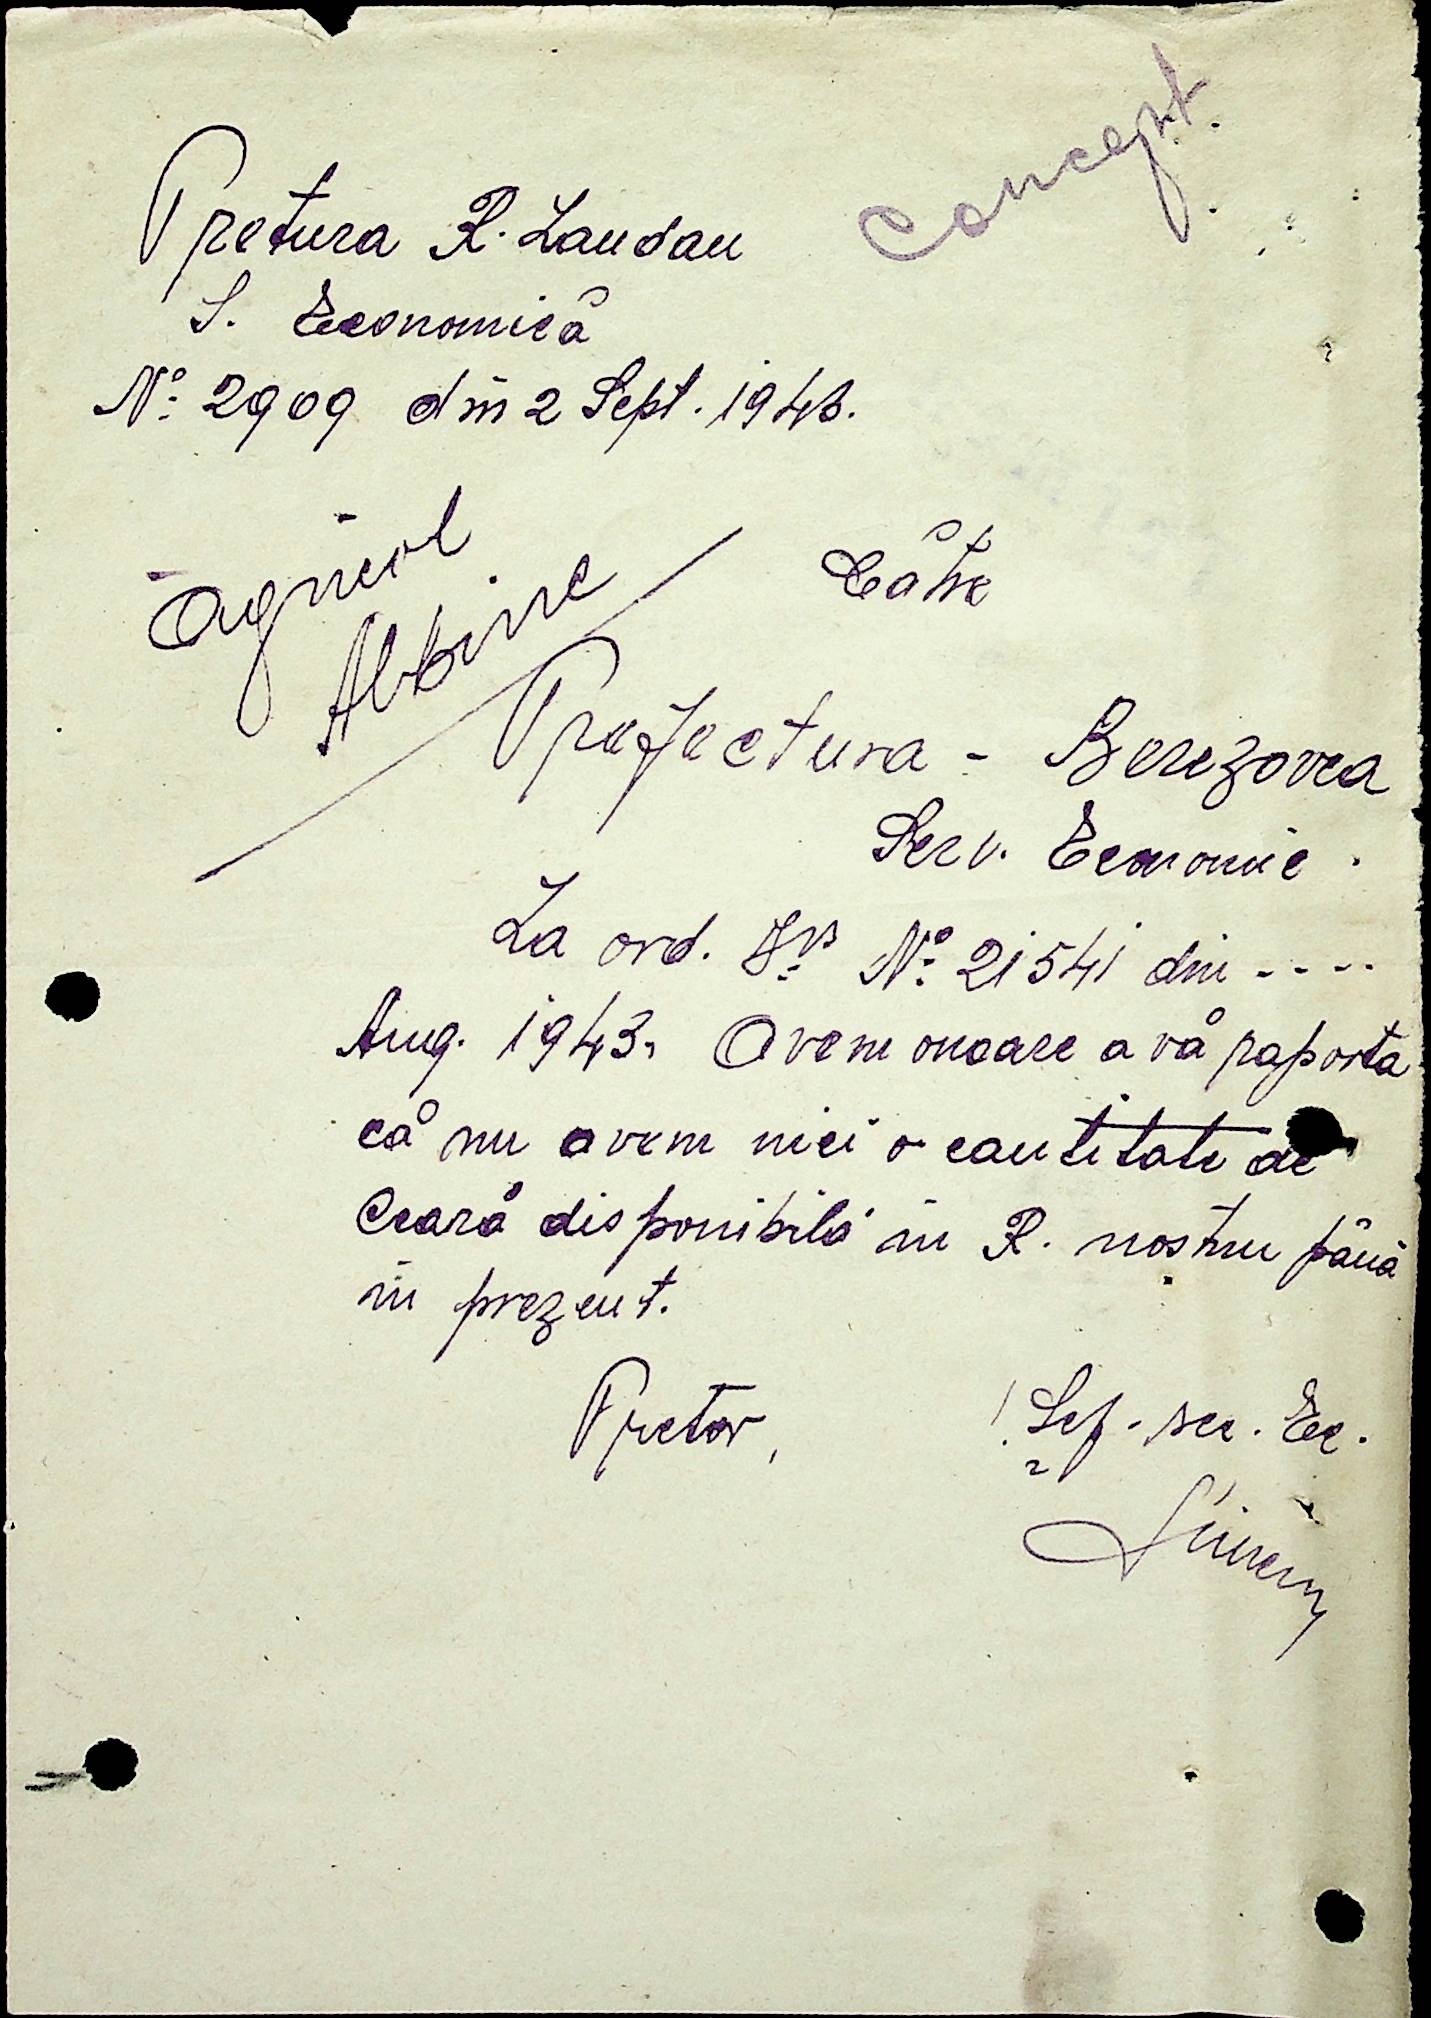 Concept
Pretura R. Landau
S. Economică
No. 2909 din 2 Sept. 1943.
Agricol
Albine
Către
Prefectura - Berezovca
Serv. Economic.
La ord. Dvs No. 21541 din ----
Aug. 1943. Avem onoare a vă raporta
că nu avem nici o cantitate de
Ceară disponibilă în R. nostru până
în prezent.
Pretor,
Șef. sec. Ec.